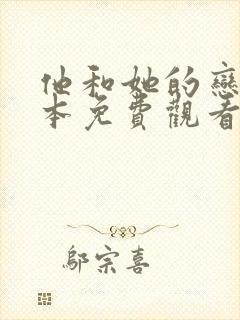 他和她的戀
本免費觀看
鄔宗喜